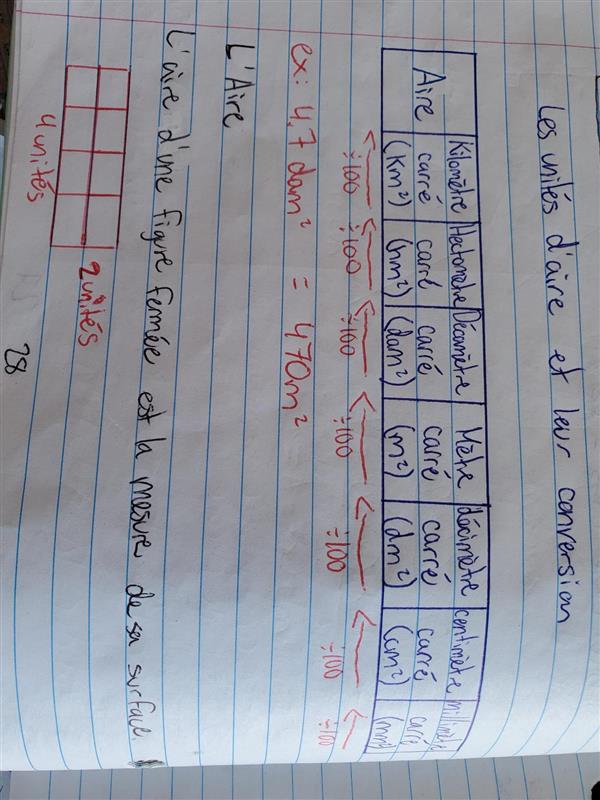 Les unités d'aire et leur conversion
Aire
Kilomètre carré (km²)
Hectomètre carré (hm²)
Décamètre carré (dam²)
Mètre carré (m²)
décimètre carré (dm²)
centimètre carré (cm²)
millimètre carré (mm²)
÷100 ÷100 ÷100 ÷100 ÷100 ÷100 ÷100
ex: 4,7 dam² = 470m²
L'Aire
L'aire d'une figure fermée est la mesure de sa surface.
2 unités
4 unités
28